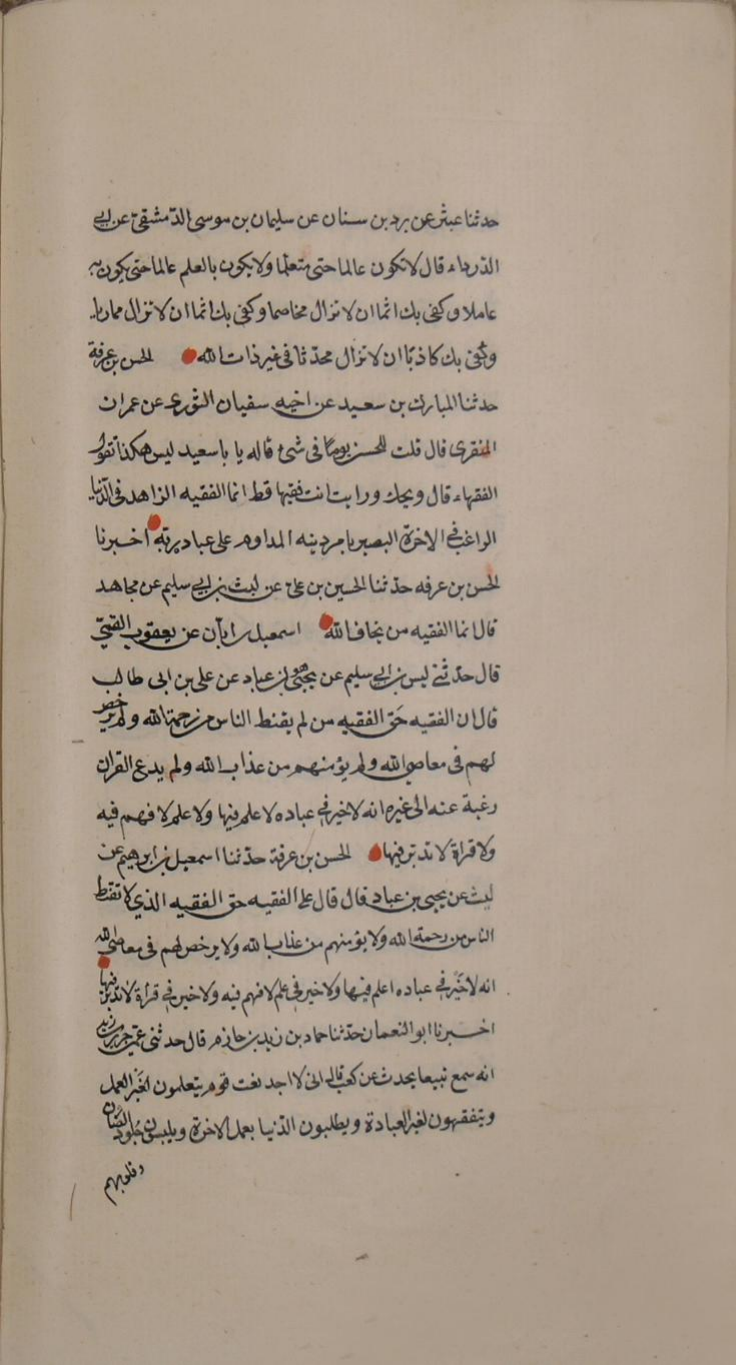 حدثنا عبثر عن برد بن سنان عن سليمان بن موسى الدمشقي عن ابي
الدرداء قال لا تكون عالما حتى متعلما ولا يكون بالعلم عالما حتى يكون به
عاملا وكفى بك اثما ان لا تزال مخاصما وكفى بك اثما ان لا تزال مماريا
وكفى بك كاذبا ان لا تزال محدثا في غير ذات الله الحسن بن عرفة
حدثنا المبارك بن سعيد عن اخيه سفيان الثوري عن عمران
المنقري قال قلت للحسن يوما في شيء قاله يا با سعيد ليس هكذا تقول
الفقهاء قال ويحك ورايت انت فقيها قط انما الفقيه الزاهد في الدنيا
الراغب في الاخرة البصير بامر دينه المداوم على عباد ربه اخبرنا
الحسن بن عرفه حدثنا الحسين بن علي عن ليث بن ابي سليم عن مجاهد
قال انما الفقيه من يخاف الله اسمعيل بن ابان عن يعقوب القمي
قال حدثني ليس بن ابي سليم عن يحيى هو ابن عباد عن علي بن ابي طالب
قال ان الفقيه حق الفقيه من لم يقنط الناس من رحمة الله ولم يرخص
لهم في معاصي الله ولم يؤمنهم من عذاب الله ولم يدع القران
رغبة عنه الى غيره انه لا خير في عباده لا علم فيها ولا علم لا فهم فيه
ولا قراة لا تدبر فيها الحسن بن عرفة حدثنا اسمعيل بن ابرهيم عن
ليث عن يحيى بن عباد قال قال علي الفقيه حق الفقيه الذي لا تقنط
الناس من رحمة الله ولا يؤمنهم من عذاب الله ولا يرخص لهم في معاصي الله
انه لا خير في عباده اعلم فيها ولا خير في علم لا فهم فيه ولا خير في قراة لا تدبر فيها
اخبرنا ابو النعمان حدثنا حماد بن زيد بن حازم قال حدثني عمي جرير بن زيد
انه سمع تبيعا يحدث عن كعب قال اني لا اجد نعت قوم يتعلمون لغير العمل
ويتفقهون لغير العبادة ويطلبون الدنيا بعمل الاخرة ويلبسون جلود الضان
وقلوبهم